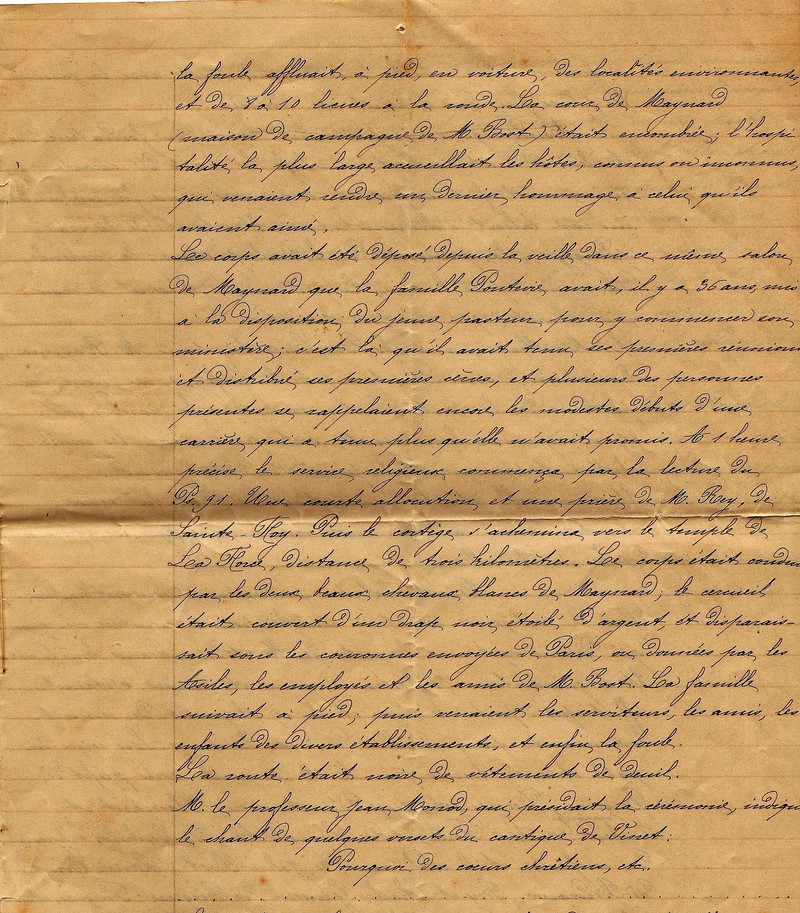 la foule affluait, à pied, en voiture, des localités environnantes,
et de 8 à 10 lieues à la ronde. La cour de Maynard
(maison de campagne de M. Bost) était encombrée; l'hospi
talité la plus large accueillait les hôtes, connus ou inconnus,
qui venaient rendre un dernier hommage à celui qu'ils
avaient aimé.
Le corps avait été déposé depuis la veille dans ce même salon
de Maynard que la famille Ponterie avait, il y a 36 ans, mis
à la disposition du jeune pasteur pour y commencer son
ministère; c'est là qu'il avait tenu ses premières réunions
et distribué ses premières cènes, et plusieurs des personnes
présentes se rappelaient encore les modestes débuts d'une
carrière qui a tenu plus qu'elle n'avait promis. A 1 heure
précise le service religieux commença par la lecture du
Ps 91. Une courte allocution et une prière de M. Rey, de
Sainte-Foy. Puis le cortège s'achemina vers le temple de
La Force, distance de trois kilomètres. Le corps était condui
par les deux beaux chevaux blancs de Maynard; le cercueil
était couvert d'un drap noir étoilé d'argent et disparais-
sait sous les couronnes envoyées de Paris, ou données par les
Asiles, les employés et les amis de M. Bost. La famille
suivait à pied; puis venaient les serviteurs, les amis, les
enfants des divers établissements, et enfin la foule.
La route était noire de vêtements de deuil.
M. le professeur Jean Monod, qui présidait la cérémonie, indiqu
le chant de quelques versets du cantique de Vinet:
Pourquoi des cœurs chrétiens, etc.